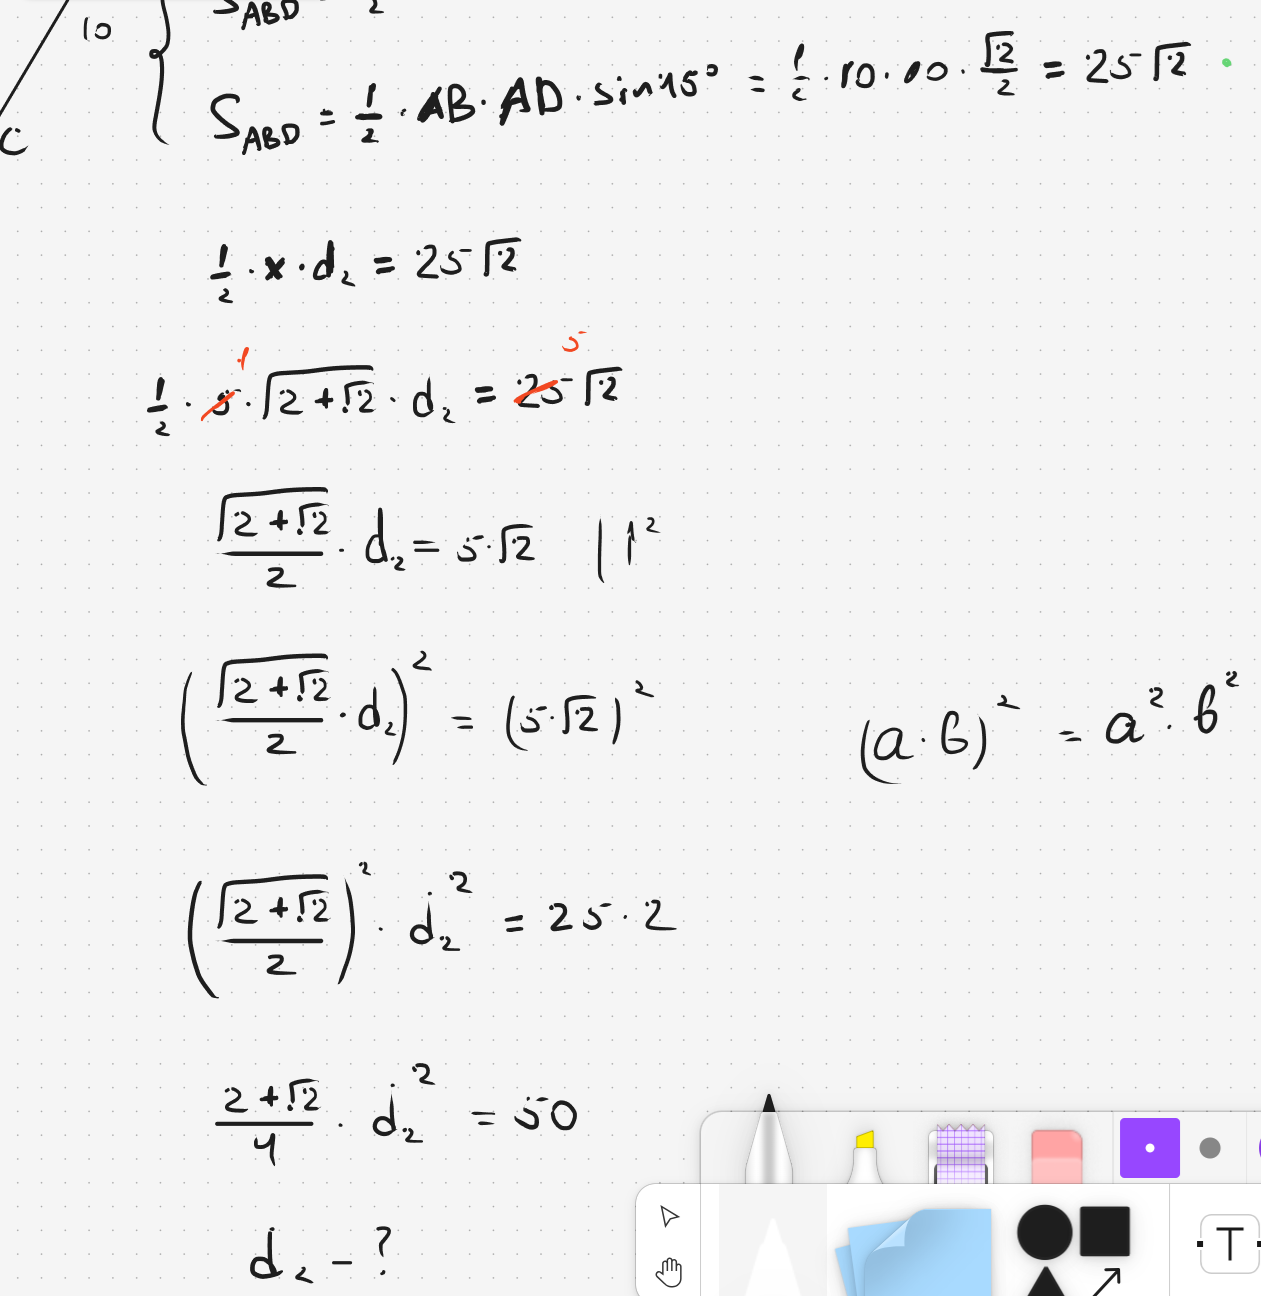 10
S_ABD = 1/2
C
S_ABD = 1/2 · AB · AD · sin45° = 1/2 · 10 · 10 · √2/2 = 25√2
1/2 · x · d₂ = 25√2
1 5
1/2 · 5 · √(2+√2) · d₂ = 25√2
√(2+√2)/2 · d₂ = 5·√2 | ↑²
(√(2+√2)/2 · d₂)² = (5·√2)²
(a · b)² = a² · b²
(√(2+√2)/2)² · d₂² = 25 · 2
(2+√2)/4 · d₂² = 50
d₂ – ?
T